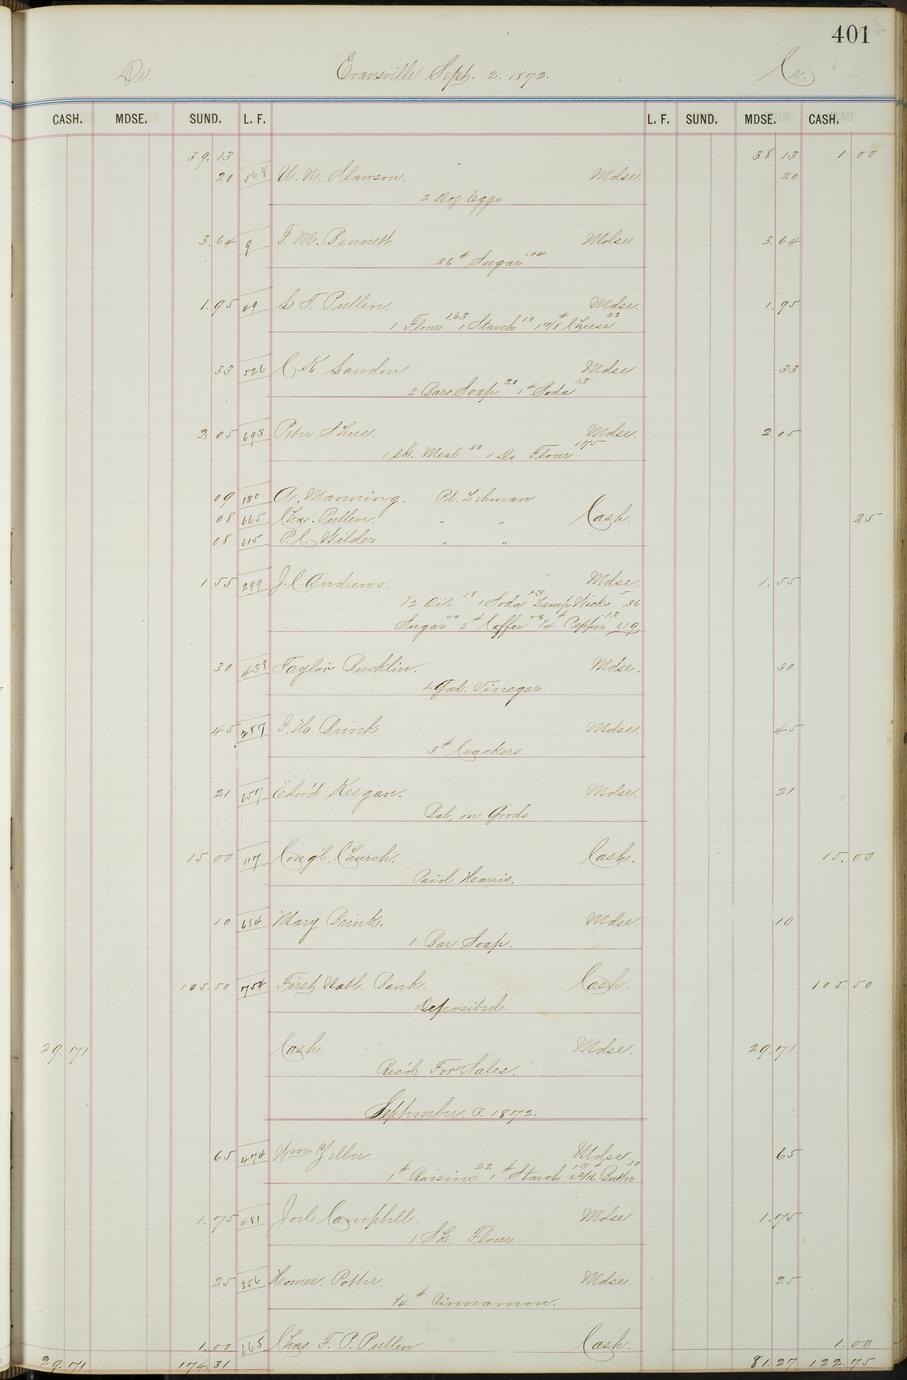 401
Dr. Evansville Sept. 2. 1872. Cr.
CASH. MDSE. SUND. L. F. L. F. SUND. MDSE. CASH.
39.13 38 13 1 00
20 568 Mdse. 20
2 Doz Eggs
3.64 9 J. M. Bennett. Mdse 3.64
26# Sugar .14
1.95 49 L. F. Pullen. Mdse. 1.95
1 Flour 1.63 1 Starch 10 Cheese 22
33 526 C. K. Landon Mdse 33
2 Bars Soap 20 1# Soda 13
2 05 693 Peter Shue. Mdse. 2.05
1 Sk. Meal 30 1 Do Flour 175
09 130 A. Manning. Pd. Lehman
08 665 Chas. Pullen " " Cash. 25
08 615 P. C. Wilder " "
1 55 299 J. C. Andrews. Mdse. 1.55
1/2 Oil 18 1 Soda 13 Lamp Wicks 5 36
Sugar 2# Coffee 1/4# Pepper 13 519
30 438 Taylor Bucklin. Mdse. 30
Gal. Vinegar.
45 287 J. H. Brink Mdse. 45
3# Crackers
21 657 Edw'd Keegan. Mdse. 21
Bal, on Goods
15 00 117 Cong'l. Church. Cash. 15.00
Paid
10 684 Mary Brink. Mdse 10
1 Bar Soap.
105.50 754 First Natl. Bank. Cash. 105.50
Deposited.
29.71 Cash Mdse. 29.71
Rec'd For Sales.
September. 3. 1872.
65 474 Wm Mdse. 65
1# Raisins 22 1# Starch 13 Butter 30
1.75 481 Joel Campbell. Mdse. 1.75
1 Sk. Flour.
25 356 Homer Potter. Mdse. 25
1/4# Cinnamon.
1.00 665 Chas. F. P. Pullen Cash. 1.00
29.71 174.31 81.27 122.75